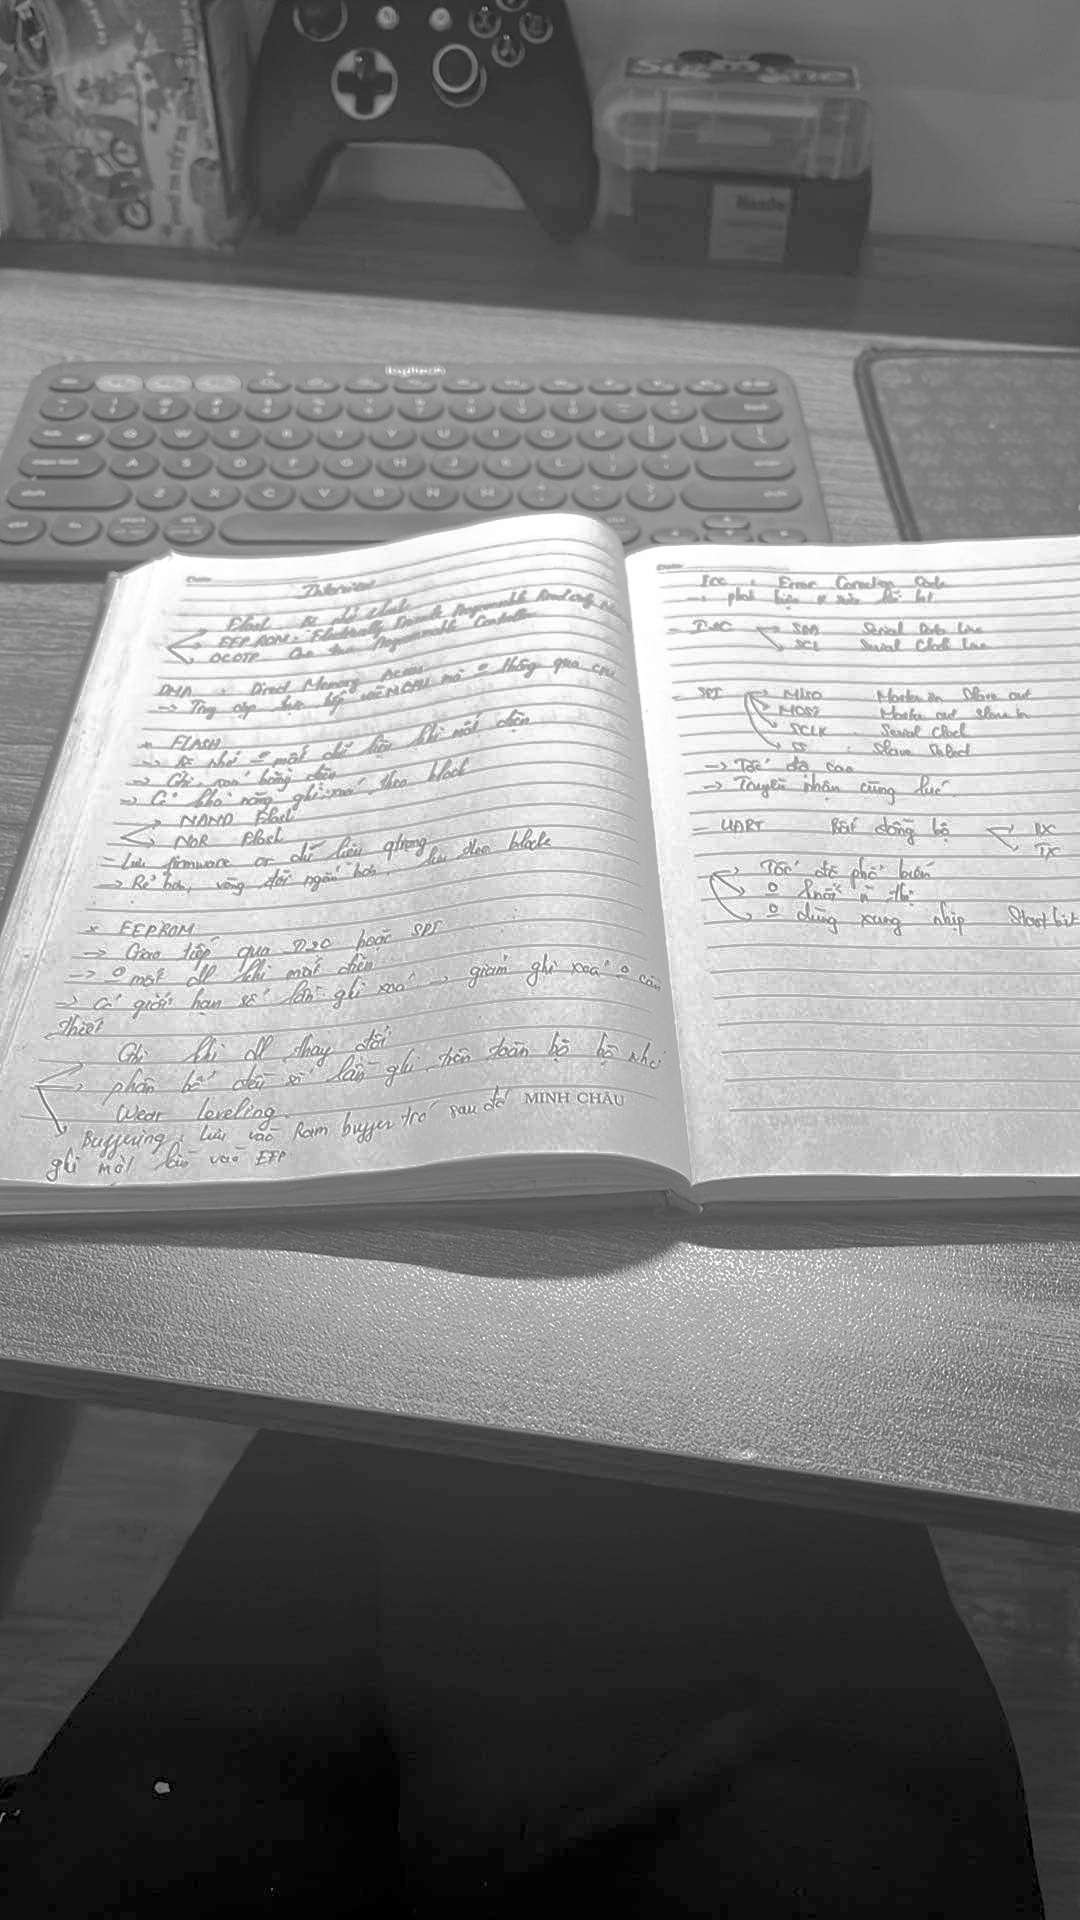 logitech
Interview
Flash : Bộ nhớ flash
EEPROM : Electrically Erasable Programmable Read Only
OCOTP On chip Programmable Controller
DMA : Direct Memory Access
→ Truy cập trực tiếp mà 0 thông qua CPU
* FLASH
→ Bộ nhớ 0 mất dữ liệu khi mất điện
→ Ghi xoá bằng điện
→ Có khả năng ghi xoá theo block
→ NAND Flash
NOR Flash
- Lưu firmware or dữ liệu qtrọng
→ Rẻ hơn, vòng đời ngắn hơn, lưu theo block
* EEPROM
→ Giao tiếp qua I2C hoặc SPI
→ 0 mất dl khi mất điện
→ Có giới hạn số lần ghi xoá → giảm ghi xoá 0 cần
thiết
Ghi khi dl thay đổi
phân bổ đều số lần ghi trên toàn bộ bộ nhớ
Wear leveling
Buffering : Lưu vào Ram buffer trc sau đó
ghi một lần vào EEP
MINH CHÂU
Ecc : Error Correction Code
→ phát hiện & sửa lỗi bit
- I2C → SDA Serial Data Line
SCL Serial Clock Line
- SPI → MISO Master in Slave out
MOSI Master out slave in
SCLK Serial Clock
SS : Slave Select
→ Tốc độ cao
→ Truyền nhận cùng lúc
- UART Bất đồng bộ RX
TX
Tốc độ phổ biến
0
0 dùng xung nhịp Start bit